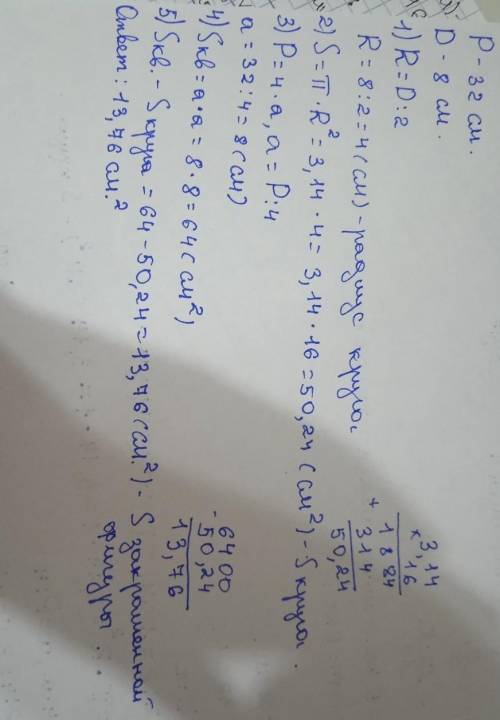 P - 32 см.
D - 8 см.
1) R = D : 2
R = 8 : 2 = 4 (см) - радиус круга.
2) S = π · R² = 3,14 · 4 = 3,14 · 16 = 50,24 (см²) - S круга.
3) P = 4 · a, a = P : 4
a = 32 : 4 = 8 (см)
4) Sкв = a · a = 8 · 8 = 64 (см²)
5) Sкв. - S круга = 64 - 50,24 = 13,76 (см.²) - S закрашенной
фигуры.
Ответ: 13,76 см.²
3,14
× 16
1884
+ 314
50,24
6400
- 50,24
13,76